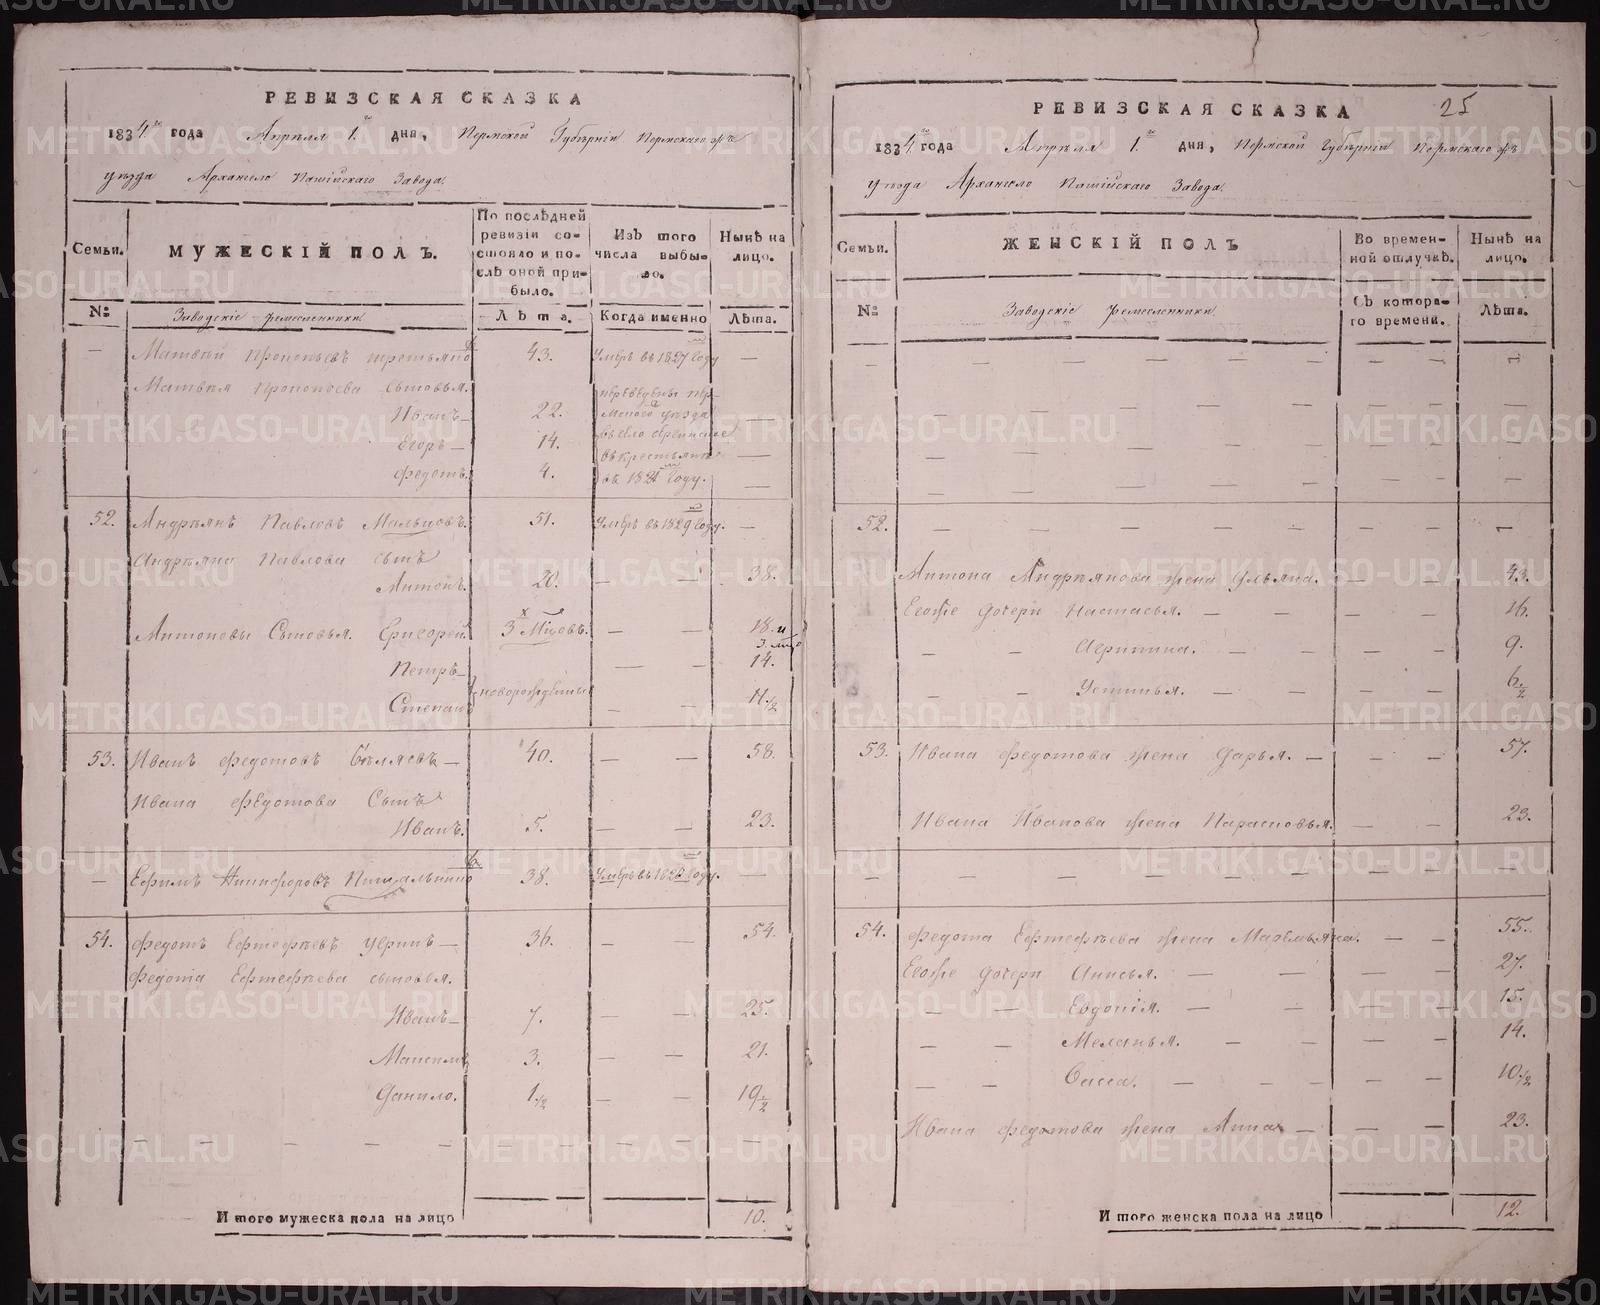 РЕВИЗСКАЯ СКАЗКА
1834го года Апреля 1го дня, Пермской Губернiи Пермскаго
уезда Архангело Пашiйскаго Завода.
Семьи.
МУЖЕСКIЙ ПОЛЪ.
По последней ревизiи состояло и после оной прибыло.
Изъ того числа выбыло.
Ныне на лицо.
№
Заводскiе ремесленники
Лета.
Когда именно
Лета.
— Матвей Прокопьевъ Третьяковъ 43. Умре въ 1827м году —
Матвея Прокопьева сыновья.
Иванъ — 22. —
Егоръ — 14. —
Федотъ. 4. —
переведены Пермскаго уезда
въ село
въ крестьяне
въ году.
52. Андреянъ Павловъ Мальцовъ. 51. Умре въ 1829м году. —
Андреяна Павлова сынъ
Антонъ. 20. — — 38.
Антоновы Сыновья. Григорей 3х Мцовъ. — — 18. и
3. мцо
Петръ — — — 14.
новорожденны
Степанъ — — 11 1/2
53. Иванъ Федотовъ Беляевъ — 40. — — 58.
Ивана Федотова Сынъ
Иванъ. 5. — — 23.
— Ефимъ Никифоровъ Пищальниковъ 38. Умре въ году. —
54. Федотъ Ефтефеевъ — 36. — — 54.
Федота Ефтефеева сыновья.
Иванъ — 7. — — 25.
Максимъ 3. — — 21.
Данило. 1 1/2 — — 19 1/2
— — — — — — — —
И того мужеска пола на лицо 10.
25
РЕВИЗСКАЯ СКАЗКА
1834го года Апреля 1го дня, Пермской Губернiи Пермскаго
уезда Архангело Пашiйскаго Завода.
Семьи.
ЖЕНСКIЙ ПОЛЪ
Во временной отлучке.
Ныне на лицо.
№
Заводскiе ремесленники
Съ котораго времени.
Лета.
52. — — — — — — — —
Антона Андреянова жена Ульяна. — — 43.
Егоже дочери Настасья. — — — 16.
— — Агрипина. — — — — 9.
— — Устинья. — — — — 6 1/2
53. Ивана Федотова жена Дарья. — — — 57.
Ивана Иванова жена Парасковья. — — 23.
— — — — — — — —
54. Федота Ефтефеева жена Маремьяна. — — 55.
Егоже дочери Анисья. — — — — 27.
— — Евдокiя. — — — — 15.
— — Меланья. — — — — 14.
— — Васса. — — — — 10 1/2
Ивана Федотова жена Анна — — — 23.
И того женска пола на лицо 12.
METRIKI.GASO-URAL.RU